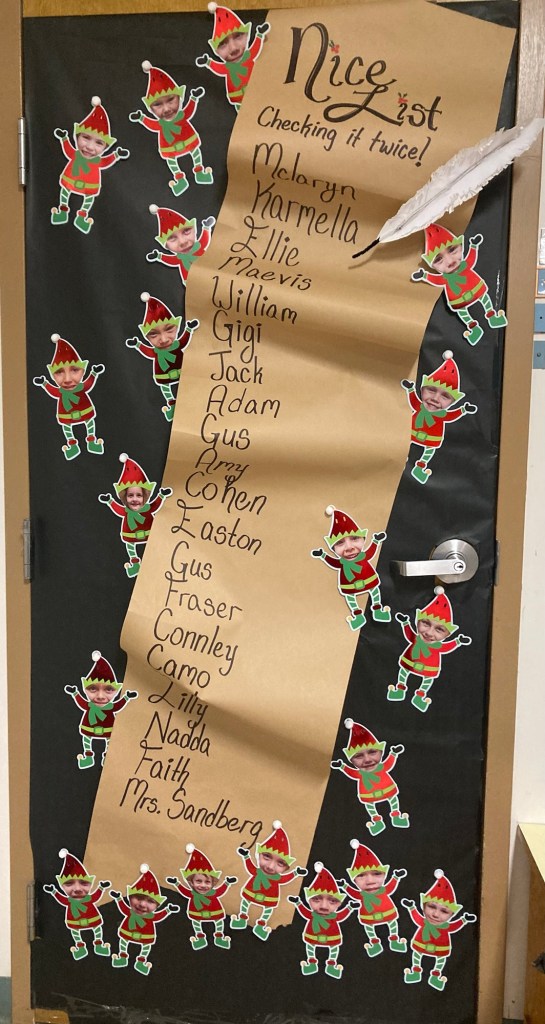 Nice List
Checking it twice!
Mclaryn
Karmella
Ellie
Maevis
William
Gigi
Jack
Adam
Gus
Amy
Cohen
Easton
Gus
Fraser
Connley
Camo
Lilly
Nadda
Faith
Mrs. Sandberg